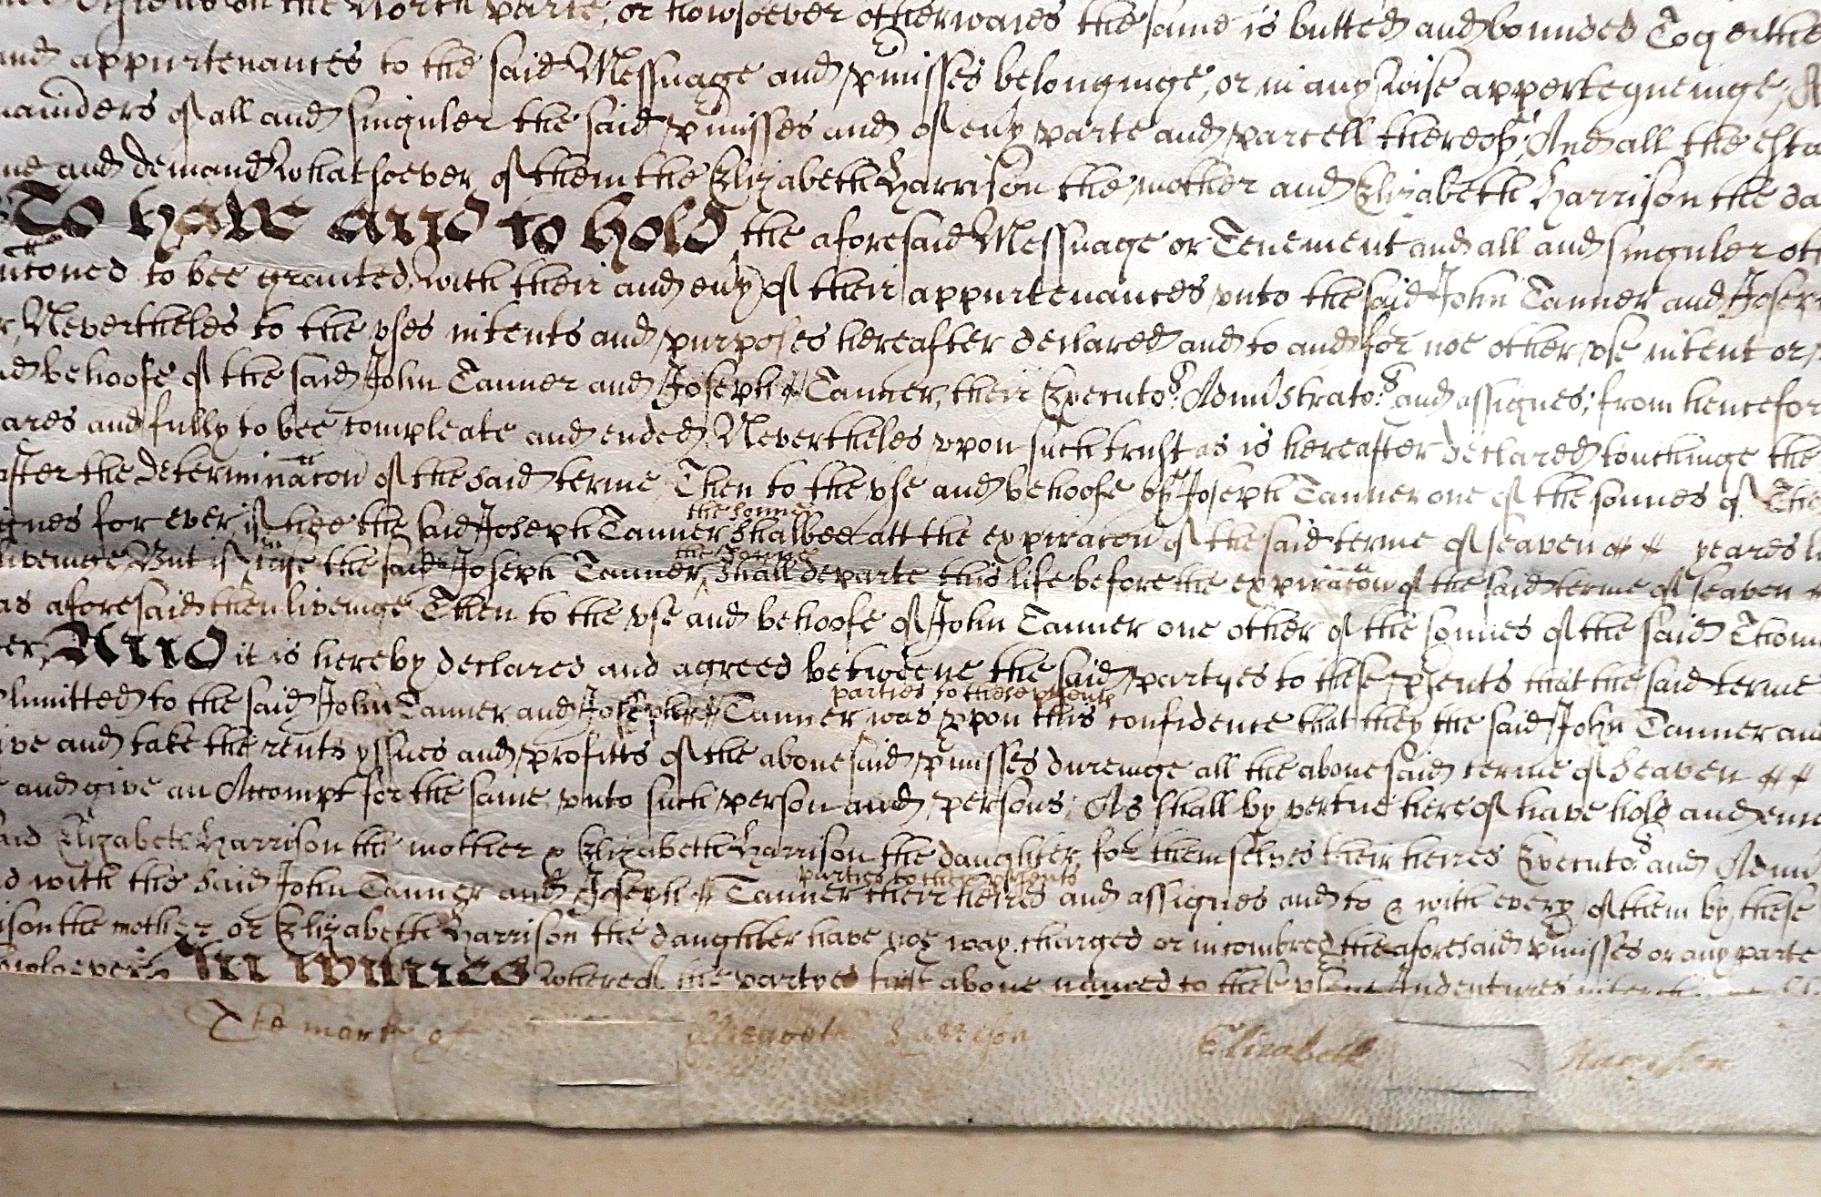 on the North parte, or howsoever otherwaies the same is butted and bounded Togeithe
and appurtenances to the said Messuage and p'misses belonginge, or in any wise apperteyneinge, A
mainders of all and singuler the said p'misses and of eu'y parte and parcell thereof, And all the esta
me and demand whatsoever of them the Elizabeth Harrison the mother and Elizabeth Harrison the da
To have and to hold the aforesaid Messuage or Tenement and all and singuler oth
ntioned to bee granted, with their and eu'y of their appurtenances vnto the said John Tanner and Josep
r, Nevertheles to the vses intents and purposes hereafter declared and to and for noe other vse intent or p
nd behoofe of the said John Tanner and Joseph Tanner, their Executors Administrators and assignes, from hencefor
eares and fully to bee compleate and ended, Nevertheles vpon such trust as is hereafter declared touchinge the
after the determinac̄on of the said terme Then to the vse and behoofe of Joseph Tanner one of the sonnes of Tho
ignes for ever if hee the said Joseph Tanner the sonne shalbee att the expirac̄on of the said terme of seaven yeares li
liveinge, But if in case the said Joseph Tanner the sonne shall departe this life before the expirac̄on of the said terme of seaven
as aforesaid then liveinge Then to the vse and behoofe of John Tanner one other of the sonnes of the said Thom
er, And it is hereby declared and agreed betweene the said partyes to these p'sents that the said terme
limitted to the said John Tanner and Joseph Tanner parties to these p'sents was vpon this confidence that they the said John Tanner and
ive and take the rents yssues and profitts of the abovesaid p'misses dureinge all the abovesaid terme of seaven
e and give an Accompt for the same, vnto such person and persons, As shall by vertue hereof have hold and enio
said Elizabeth Harrison the mother & Elizabeth Harrison the daughter, for themselves their heires Executors and Admi
d with the said John Tanner and Joseph Tanner parties to these p'sents their heires and assignes and to & with every of them by these
ison the mother or Elizabeth Harrison the daughter have noe way charged or incombred the aforesaid p'misses or any parte
whatsoever. In witnes whereof the partyes first above named to these p'sent Indentures
The mark of Elizabeth Harrison Elizabeth Harrison